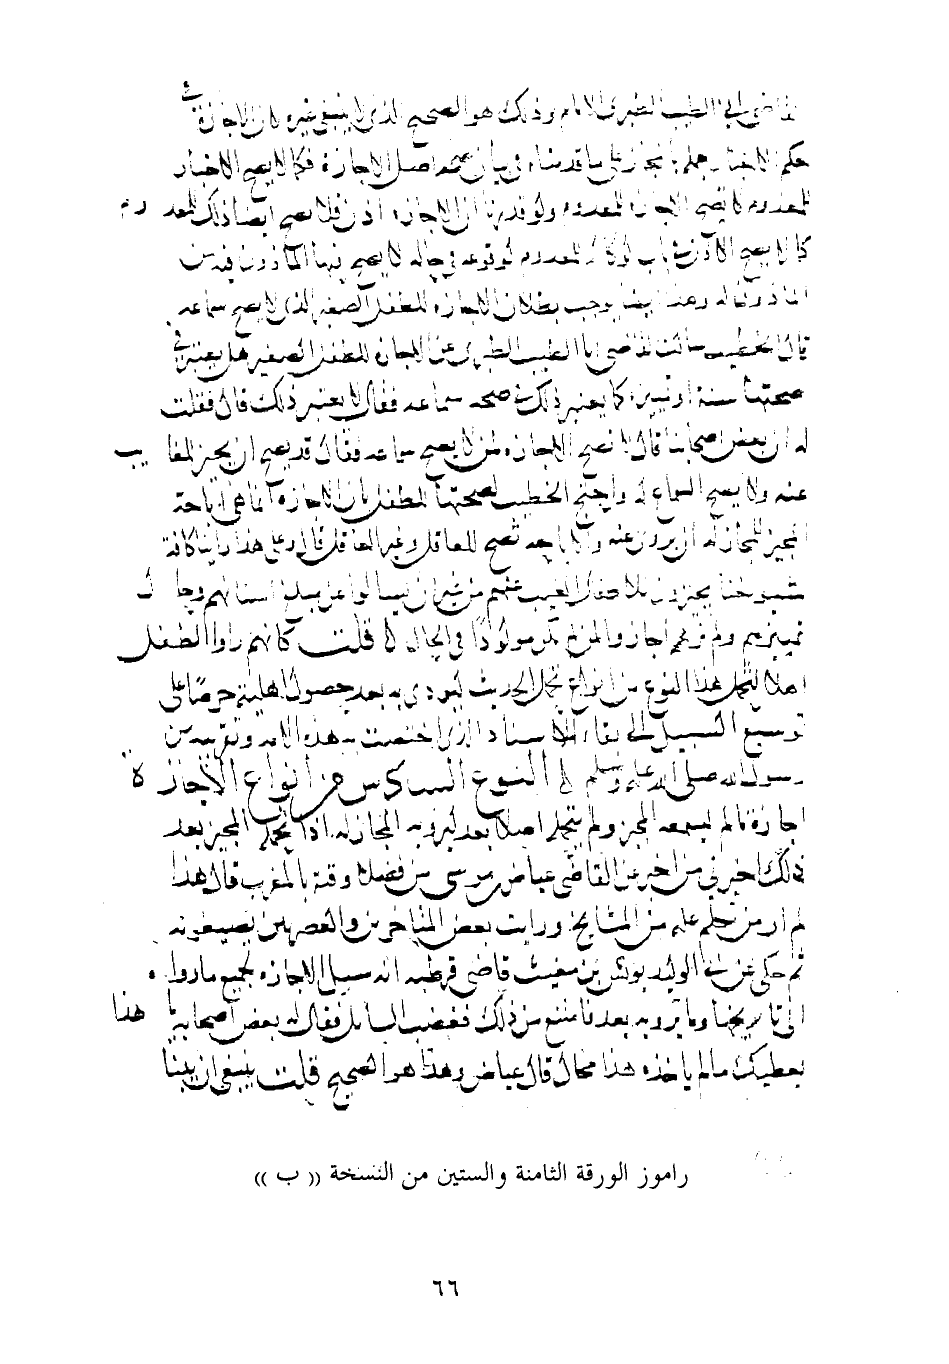 القاضي ابي الطيب الطبري الامام وذلك هو الصحيح الذي لا ينبغي غيره لان الاجازة في
حكم الاخبار جملة بالمجاز على ما قدمناه في بيان صحة اصل الاجازة فكما لا يصح الاخبار
للمعدوم لا تصح الاجازة للمعدوم ولو قدرنا ان الاجازة اذن فلا يصح ايضا ذلك للمعدوم
كما لا يصح الاذن في باب الوكالة للمعدوم لوقوعه في حالة لا يصح فيها المأذون فيه من
المأذون له وهذا ايضا يوجب بطلان الاجازة للطفل الصغير الذي لا يصح سماعه
قال الخطيب سالت القاضي ابا الطيب الطبري عن الاجازة للطفل الصغير هل يعتبر في
صحتها سنه او تمييزه كما يعتبر ذلك في صحة سماعه فقال لا يعتبر ذلك قال فقلت
له ان بعض اصحابنا قال لا تصح الاجازة لمن لا يصح سماعه فقال قد يصح ان يجيز للغايب
عنه ولا يصح السماع له واحتج الخطيب لصحتها للطفل بان الاجازة انما هي اباحة
المجيز للمجاز له ان يروي عنه والاباحة تصح للعاقل وغير العاقل قال وعلى هذا راينا كافة
شيوخنا يجيزون للاطفال الغيب عنهم من غير ان يسالوا عن مبلغ اسنانهم وحال
تمييزهم ولم نرهم اجازوا لمن لم يكن مولودا في الحال قلت كانهم راوا الطفل
اهلا لتحمل هذا النوع من انواع تحمل الحديث ليودي به بعد حصول اهليته حرصا على
توسيع السبيل الى بقاء الاسناد الذي اختصت به هذه الامة وتقريبه من
رسول الله صلى الله عليه وسلم النوع السادس من انواع الاجازة
اجازة ما لم يسمعه المجيز ولم يتحمله اصلا بعد ليرويه المجاز له اذا تحمله المجيز بعد
ذلك اخبرني من اخبر عن القاضي عياض بن موسى من فضلا وقته بالمغرب قال هذا
لم ار من تكلم عليه من المشايخ ورايت بعض المتاخرين والعصريين يصنعونه
ثم حكى عن ابي الوليد يونس بن مغيث قاضي قرطبة انه سيل الاجازة لجميع ما رواه
الى تاريخها وما يرويه بعد فامتنع من ذلك فغضب السايل فقال له بعض اصحابه يا هذا
يعطيك ما لم ياخذه هذا محال قال عياض وهذا هو الصحيح قلت ينبغي ان يبنا
راموز الورقة الثامنة والستين من النسخة (( ب ))
٦٦